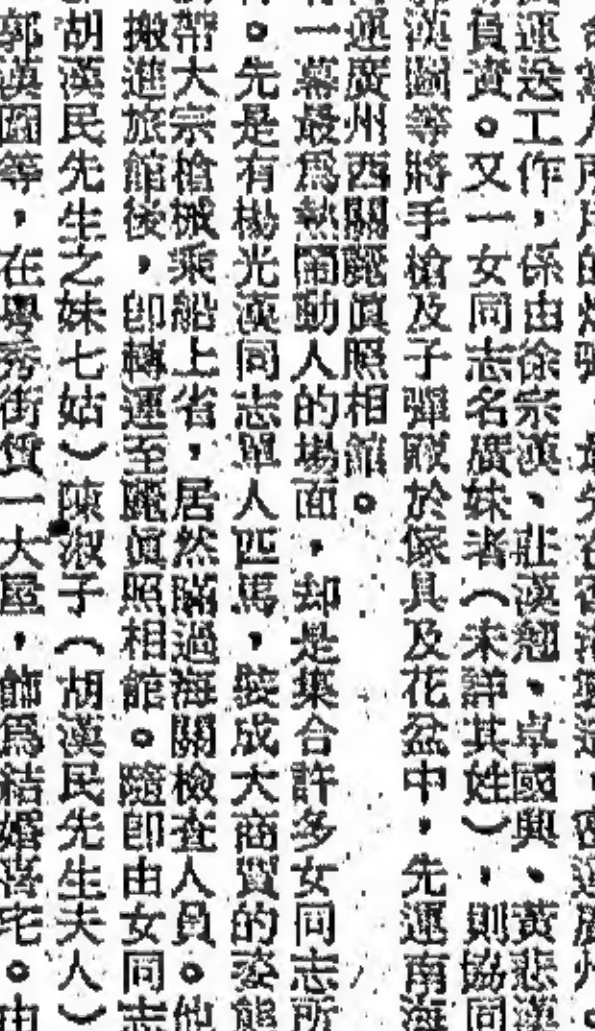 運送工作，係由徐宗漢、莊漢翹、卓國興、黃悲漢
負責。又一女同志名廣妹者（未詳其姓），則協同
漢圖等將手槍及子彈藏於傢具及花盆中，先運南海
運廣州西關麗眞照相館。
一幕最爲熱鬧動人的場面，却是集合許多女同志所
。先是有楊光漢同志單人匹馬，裝成大商賈的姿態
帶大宗槍械乘船上省，居然瞞過海關檢查人員。他
搬進旅館後，卽轉運至麗眞照相館。隨卽由女同志
胡漢民先生之妹七姑）陳淑子（胡漢民先生夫人）
郭漢圖等，在粵秀街賃一大屋，飾爲結婚喜宅。由